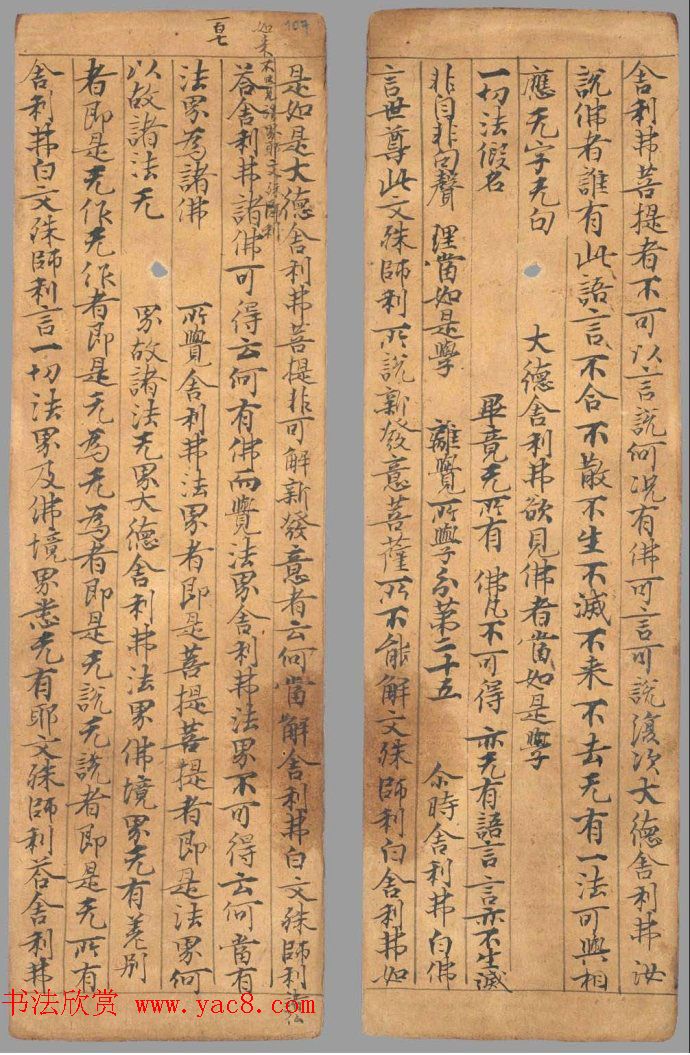 舍利弗菩提者不可以言說何況有佛可言可說復次大德舍利弗汝
說佛者誰有此語言不合不散不生不滅不来不去无有一法可與相
應无字无句 大德舍利弗欲見佛者當如是學
一切法假名 畢竟无所有 佛不可得 亦无有語言 言亦不生滅
非自非句聲 理當如是學 離覺所學分第二十五 尒時舍利弗白佛
言世尊此文殊師利所說新發意菩薩所不能解文殊師利白舍利弗如
107
如来不覺法界耶文殊師利
是如是大德舍利弗菩提非可解新發意者云何當解舍利弗白文殊師利諸
荅舍利弗諸佛可得云何有佛而覺法界舍利弗法界不可得云何當有
法界為諸佛 所覺舍利弗法界者即是菩提菩提者即是法界何
以故諸法无 界故諸法无界大德舍利弗法界佛境界无有差別
者即是无作无作者即是无為无為者即是无說无說者即是无所有
舍利弗白文殊師利言一切法界及佛境界悉无有耶文殊師利荅舍利弗
书法欣赏 www.yac8.com